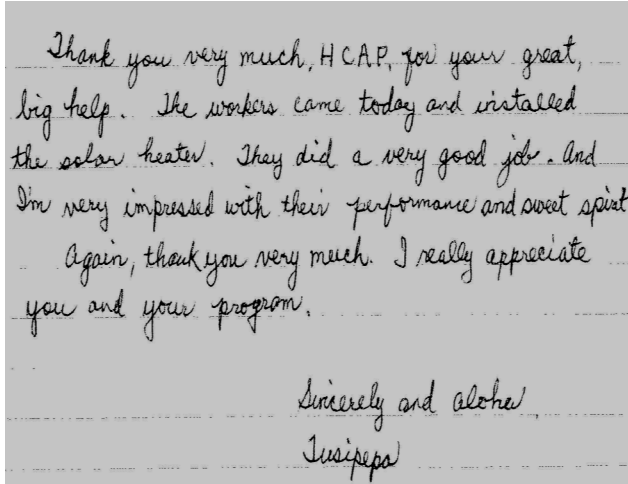 Thank you very much, HCAP, for your great,
big help. The workers came today and installed
the solar heater. They did a very good job. And
I'm very impressed with their performance and sweet spirit
Again, thank you very much. I really appreciate
you and your program.
Sincerely and aloha,
Tusipepa